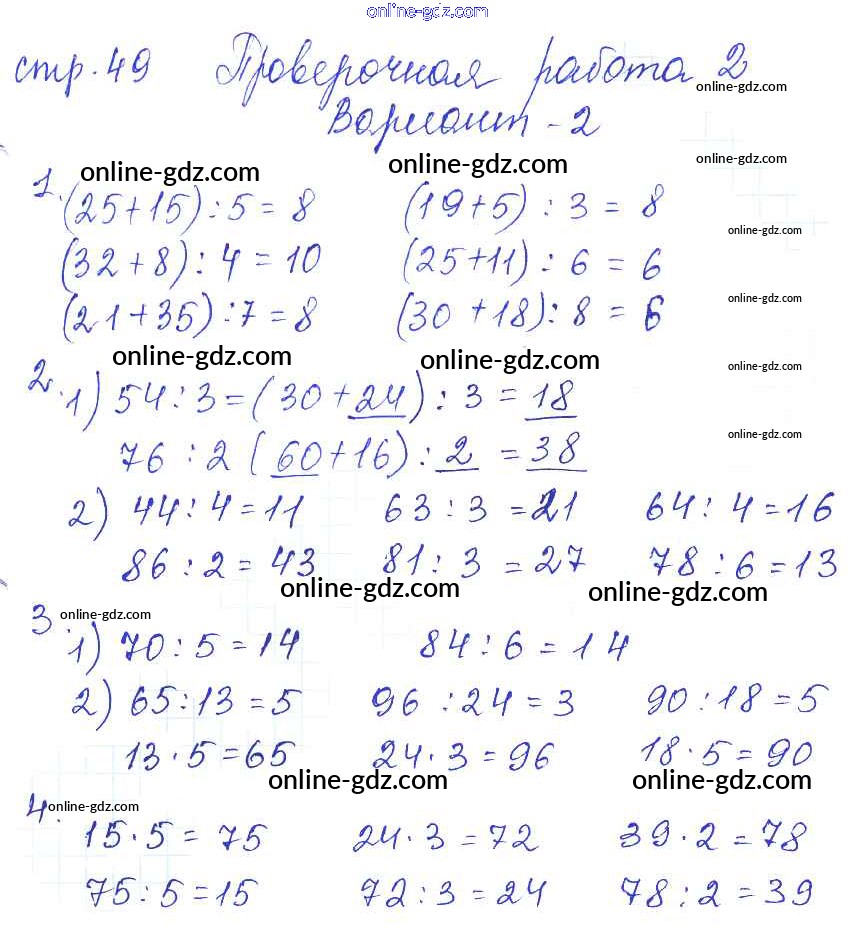 online-gdz.com
стр. 49 Проверочная работа 2
online-gdz.com
Вариант - 2
online-gdz.com
online-gdz.com online-gdz.com
1. (25+15) : 5 = 8 (19+5) : 3 = 8
online-gdz.com
(32+8) : 4 = 10 (25+11) : 6 = 6
online-gdz.com
(21+35) : 7 = 8 (30+18) : 8 = 6
online-gdz.com online-gdz.com
online-gdz.com
2. 1) 54 : 3 = (30+24) : 3 = 18
online-gdz.com
76 : 2 (60+16) : 2 = 38
2) 44 : 4 = 11 63 : 3 = 21 64 : 4 = 16
86 : 2 = 43 81 : 3 = 27 78 : 6 = 13
online-gdz.com online-gdz.com
online-gdz.com
3 1) 70 : 5 = 14 84 : 6 = 14
2) 65 : 13 = 5 96 : 24 = 3 90 : 18 = 5
13 · 5 = 65 24 · 3 = 96 18 · 5 = 90
online-gdz.com online-gdz.com
online-gdz.com
4. 15 · 5 = 75 24 · 3 = 72 39 · 2 = 78
75 : 5 = 15 72 : 3 = 24 78 : 2 = 39